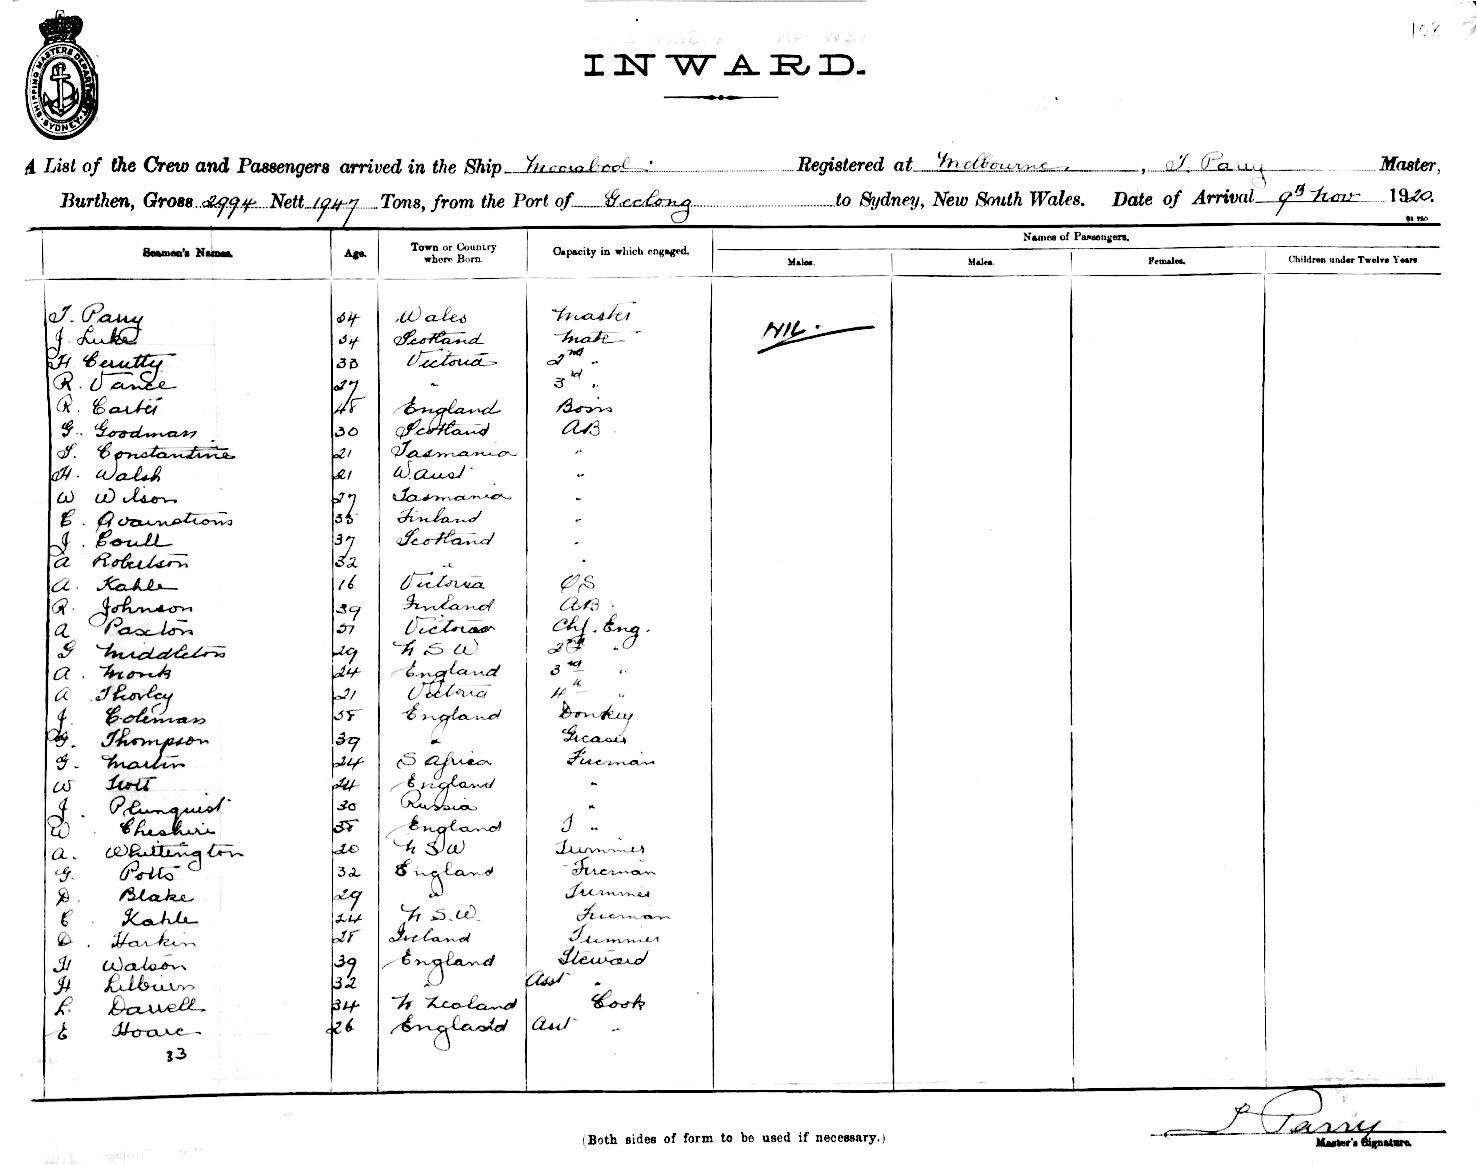 108
SHIPPING MASTERS DEPARTMENT
SYDNEY
INWARD.
A List of the Crew and Passengers arrived in the Ship Moorabool. Registered at Melbourne, T. Parry Master,
Burthen, Gross 2994 Nett 1947 Tons, from the Port of Geelong to Sydney, New South Wales. Date of Arrival 9th Nov 1920.
Names of Passengers.
Seamen's Names. Age. Town or Country where Born. Capacity in which engaged. Males. Males. Females. Children under Twelve Years
T. Parry 54 Wales Master NIL.
J. Luke 54 Scotland Mate
H Cerutty 33 Victoria 2nd "
R. Vance 27 " 3rd "
R. Carter 48 England Bosn
G. Goodman 30 Scotland AB
S. Constantine 21 Tasmania "
H. Walsh 21 W. Aust "
W Wilson 27 Tasmania "
E. 35 Finland "
J. Coull 37 Scotland "
A Robertson 32 " "
A. Kahle 16 Victoria OS
R. Johnson 39 Finland AB
A Paxton 51 Victoria Chf. Eng.
G Middleton 29 N S W 2nd "
A. Monk 24 England 3rd "
A Thorley 21 Victoria 4th "
J. Coleman 58 England Donkey
G. Thompson 39 " Greaser
G. Martin 24 S Africa Fireman
W Trott 24 England "
J. Plumquist 30 Russia "
W Cheshire 38 England "
A. Whittington 20 N S W Trimmer
G. Potts 32 England Fireman
D. Blake 29 " Trimmer
C Kahle 24 N S.W. Fireman
D. Harkin 28 Ireland Trimmer
H Watson 39 England Steward
H Lilburn 32 " Asst "
L. Darrell 34 N Zealand Cook
E Hoare 26 England Asst "
33
T Parry
Master's Signature.
(Both sides of form to be used if necessary.)